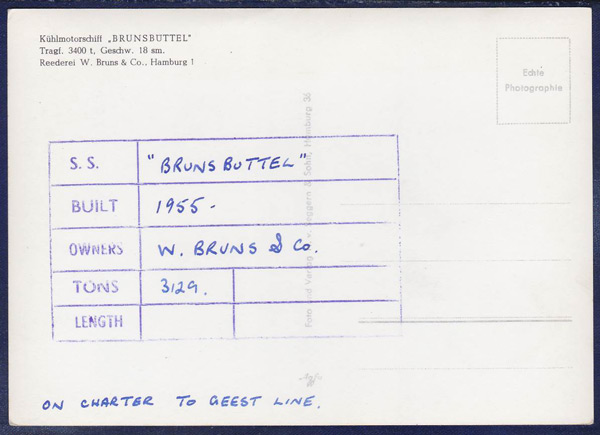 Kühlmotorschiff „BRUNSBÜTTEL"
Tragf. 3400 t, Geschw. 18 sm.
Reederei W. Bruns & Co., Hamburg 1
Echte
Photographie
S. S. "BRUNSBUTTEL"
BUILT 1955-
OWNERS W. BRUNS & Co.
TONS 3129.
LENGTH
Foto und Verlag & Sohn, Hamburg 36
ON CHARTER TO GEEST LINE.